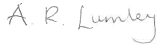 A. R. Lumley